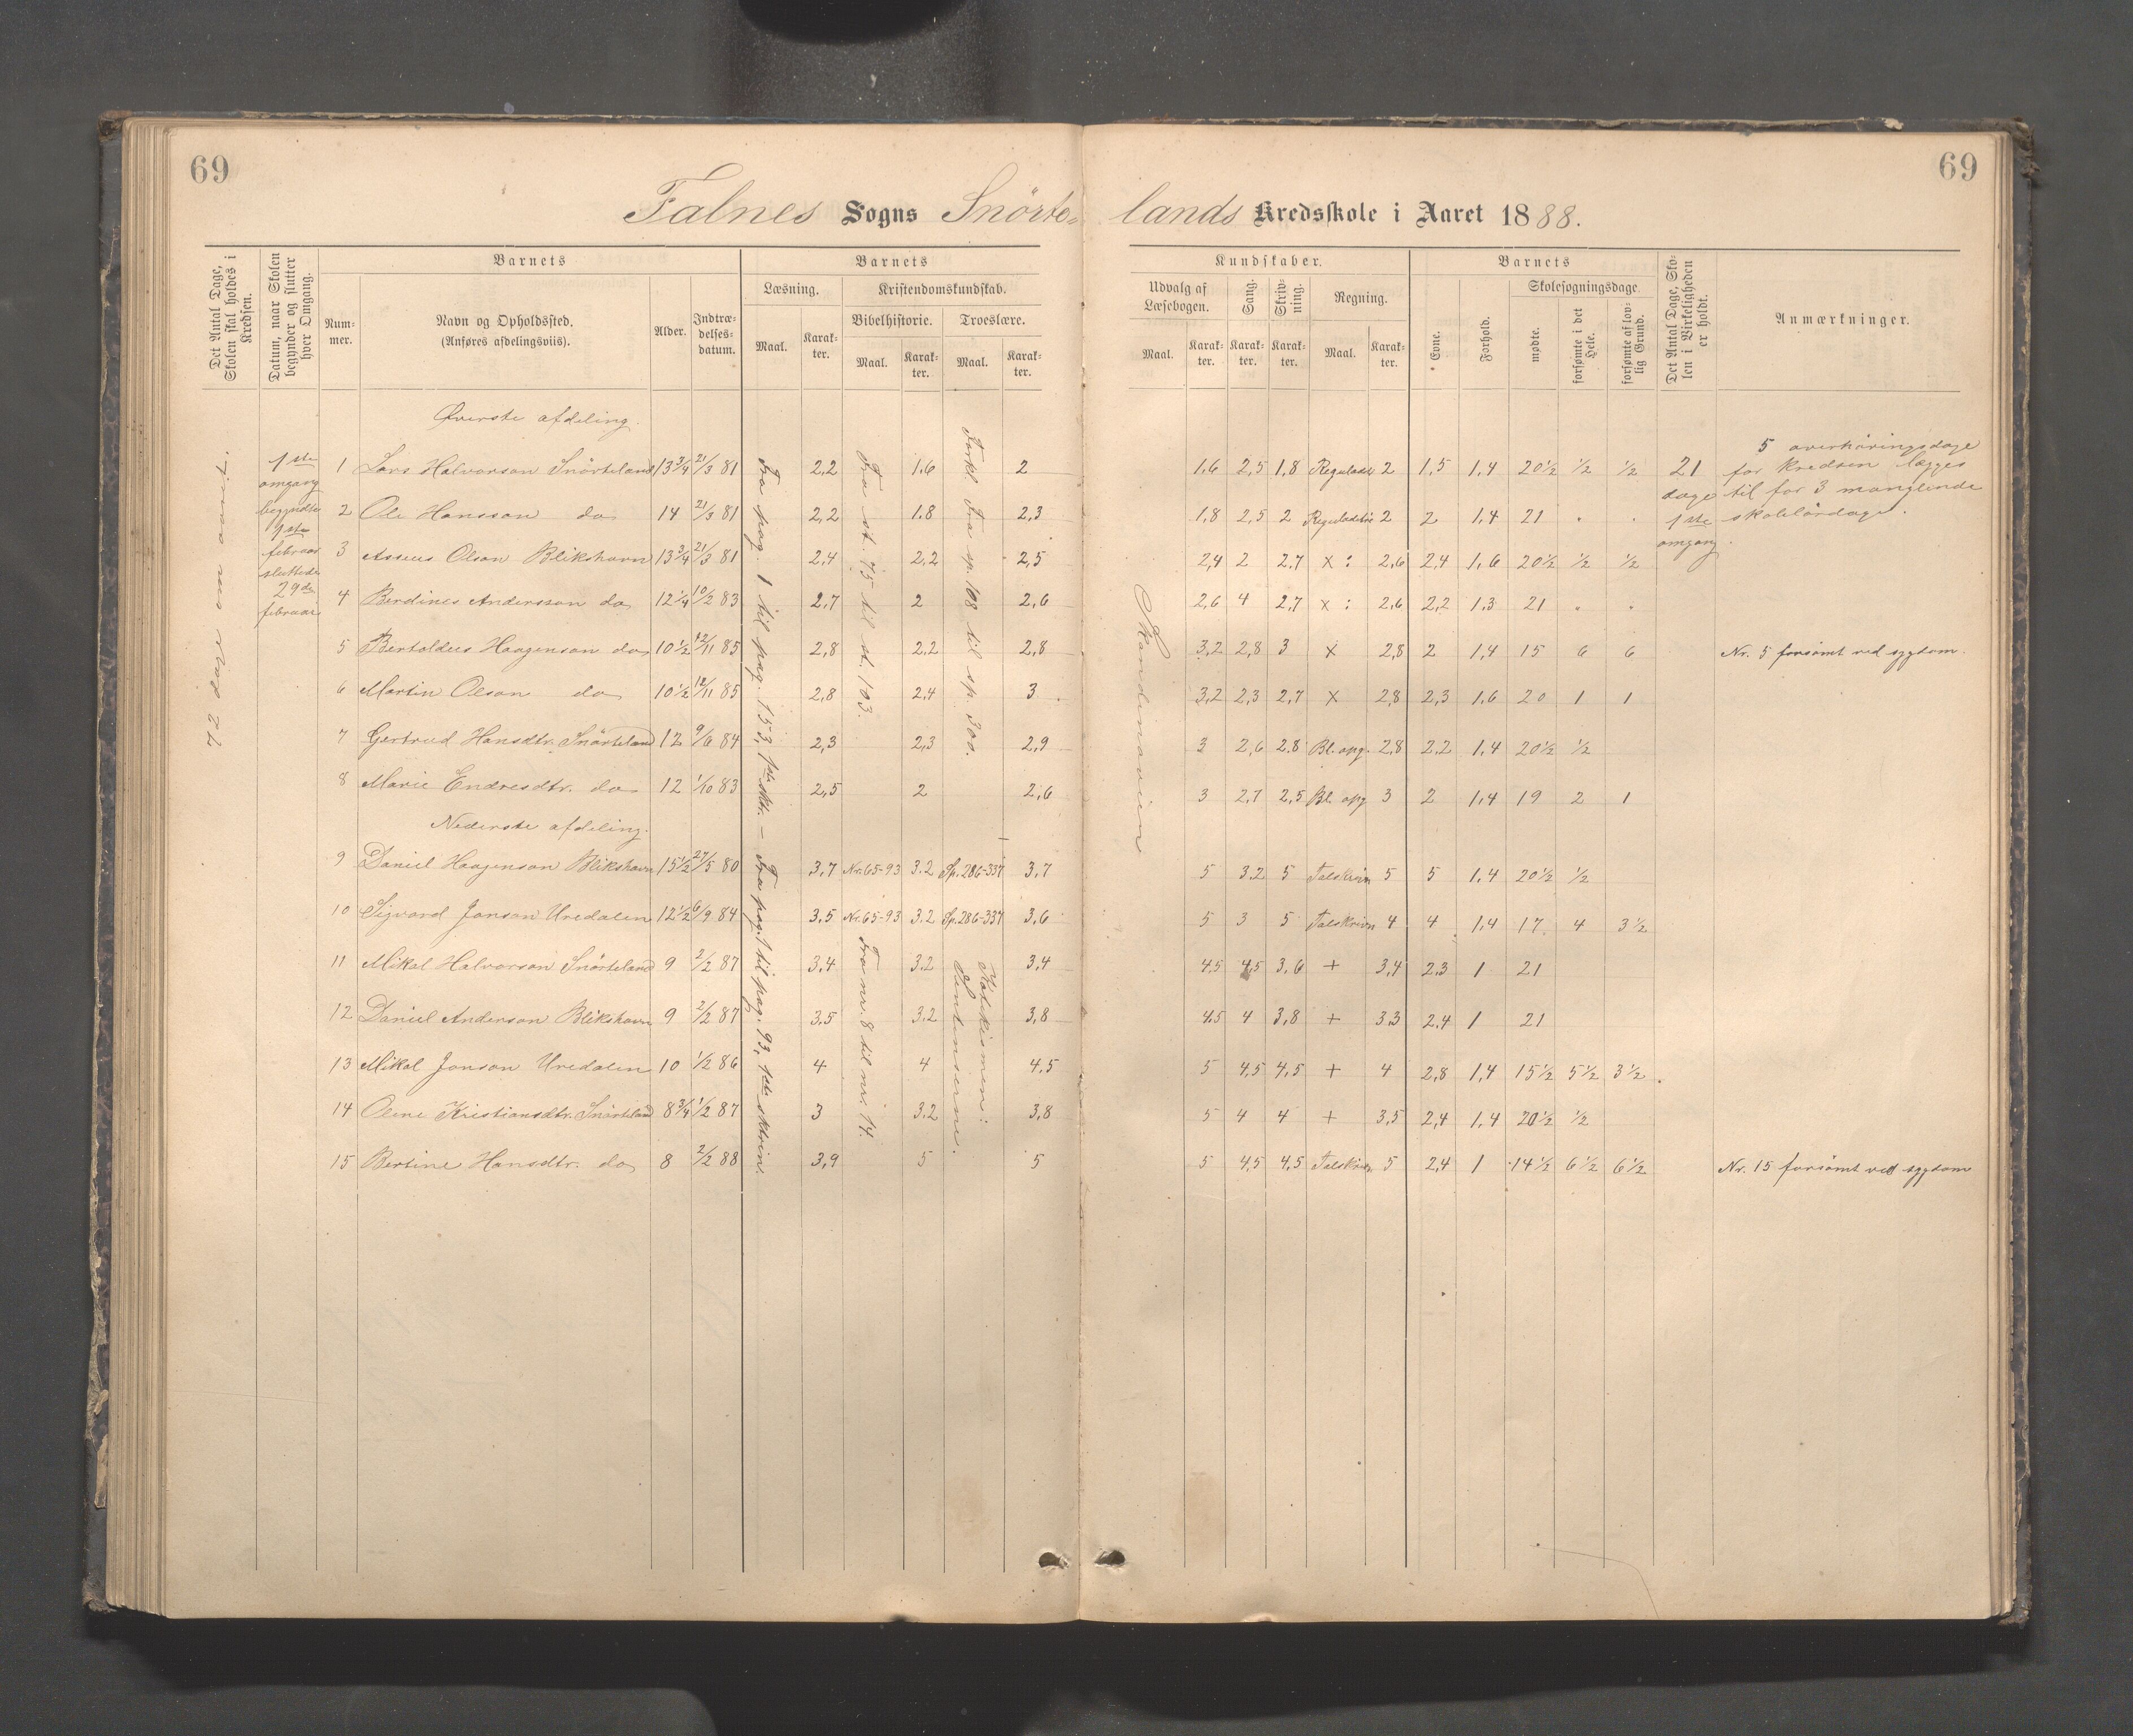 69
69
Falnes Sogns Snörte-
lands Kredsskole i Aaret 1888.
Det Antal Dage, Skolen skal holdes i Kredsen.
Datum, naar Skolen begynder og slutter hver Omgang.
Barnets
Nummer.
Navn og Opholdssted.
(Anføres afdelingsviis).
Alder.
Indtrædelsesdatum.
Barnets
Læsning.
Maal.
Karakter.
Kristendomskundskab.
Bibelhistorie.
Maal.
Karakter.
Troeslære.
Maal.
Karakter.
Kundskaber.
Udvalg af Læsebogen.
Maal.
Karakter.
Sang.
Karakter.
Skrivning.
Karakter.
Regning.
Maal.
Karakter.
Barnets
Evne.
Forhold.
Skolesøgningsdage.
mødte.
forsømte i det Hele.
forsømte af lovlig Grund.
Det Antal Dage, Skolen i Virkeligheden er holdt.
Anmærkninger.
1ste
omgang
begyndte
1ste
februar
sluttede
29de
februar
Fra pag. 1 til pag. 153, 1ste skr. — Fra pag. 1 til pag. 93, 1ste sktrin.
Fra st. 75 til st. 103.
Forkl. Fra sp. 108 til sp. 300.
Fra nr. 8 til nr. 14.
Katekismen:
Sentenserne.
Skandinavien
Øverste afdeling.
1 Lars Halvorson Snörteland 13 3/4 21/3 81 2,2 1.6 2 1.6 2,5 1,8 Reguladetri 2 1,5 1,4 20 1/2 1/2 1/2
2 Ole Hansson do 14 21/3 81 2,2 1.8 2,3 1,8 2,5 2 Reguladetri 2 2 1,4 21 . .
3 Asseus Olson Blikshavn 13 3/4 21/3 81 2,4 2,2 2,5 2,4 2 2,7 x : 2,6 2,4 1,6 20 1/2 1/2 1/2
4 Berdines Andersson do 12 1/4 10/2 83 2,7 2 2,6 2,6 4 2,7 x : 2,6 2,2 1.3 21 . .
5 Bertoldus Haagenson do 10 1/2 12/11 85 2,8 2,2 2,8 3,2 2,8 3 x 2,8 2 1,4 15 6 6 Nr. 5 forsömt ved sygdom.
6 Martin Olson do 10 1/2 12/11 85 2,8 2,4 3 3,2 2,3 2,7 x 2,8 2,3 1.6 20 1 1
7 Gertrud Hansdtr. Snörteland 12 9/6 84 2,3 2,3 2,9 3 2,6 2.8 Bl. opg. 2,8 2,2 1,4 20 1/2 1/2
8 Marie Endresdtr. do 12 1/10 83 2,5 2 2,6 3 2,7 2,5 Bl. opg 3 2 1,4 19 2 1
21
dage
1ste
omgang
5 overhöringsdage
for kredsen lægges
til for 3 manglende
skolelördage.
Nederste afdeling.
9 Daniel Haagenson Blikshavn 15 1/2 27/5 80 3,7 Nr. 65-93 3.2 Sp. 286-337 3,7 5 3.2 5 Talskrivn 5 5 1,4 20 1/2 1/2
10 Sigvard Jonson Uredalen 12 1/2 6/9 84 3,5 Nr. 65-93 3.2 Sp. 286-337 3,6 5 3 5 Talskrivn 4 4 1,4 17 4 3 1/2
11 Mikal Halvorson Snörteland 9 2/2 87 3,4 3.2 3,4 4,5 4,5 3,6 + 3,4 2,3 1 21
12 Daniel Anderson Blikshavn 9 2/2 87 3,5 3,2 3,8 4,5 4 3,8 + 3,3 2,4 1 21
13 Mikal Jonson Uredalen 10 1/2 86 4 4 4,5 5 4,5 4,5 + 4 2,8 1,4 15 1/2 5 1/2 3 1/2
14 Olene Kristiansdtr. Snörteland 8 3/4 1/2 87 3 3,2 3,8 5 4 4 + 3,5 2,4 1,4 20 1/2 1/2
15 Bertine Hansdtr. do 8 2/2 88 3,9 5 5 5 4,5 4,5 Talskrivn 5 2,4 1 14 1/2 6 1/2 6 1/2 Nr. 15 forsömt ved sygdom